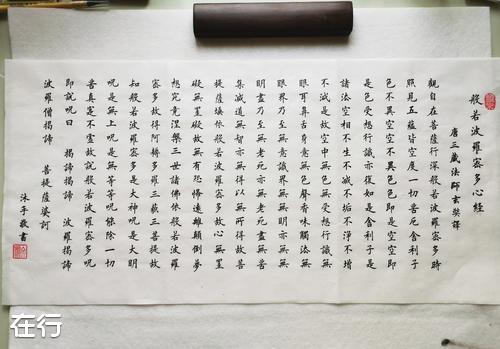 般若波羅蜜多心經
唐三藏法師玄奘譯
觀自在菩薩行深般若波羅蜜多時
照見五蘊皆空度一切苦厄舍利子
色不異空空不異色色即是空空即
是色受想行識亦復如是舍利子是
諸法空相不生不滅不垢不淨不增
不減是故空中無色無受想行識無
眼耳鼻舌身意無色聲香味觸法無
眼界乃至無意識界無無明亦無無
明盡乃至無老死亦無老死盡無苦
集滅道無智亦無得以無所得故菩
提薩埵依般若波羅蜜多故心無罣
礙無罣礙故無有恐怖遠離顛倒夢
想究竟涅槃三世諸佛依般若波羅
蜜多故得阿耨多羅三藐三菩提故
知般若波羅蜜多是大神呪是大明
呪是無上呪是無等等呪能除一切
苦真實不虛故說般若波羅蜜多呪
即說呪曰 揭諦揭諦 波羅揭諦
波羅僧揭諦 菩提薩婆訶
沐手敬書
在行